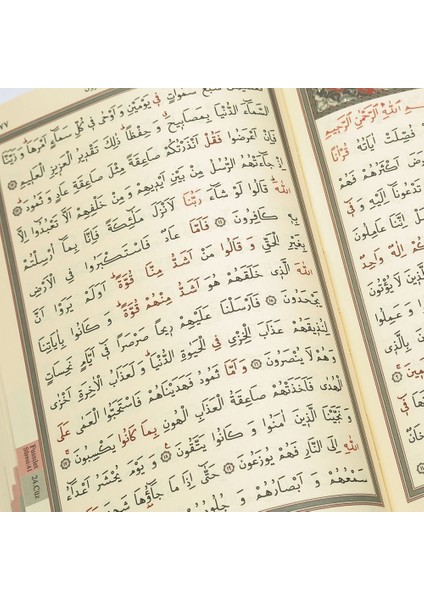 اللّٰهِ الرَّحْمٰنِ الرَّحٖيمِ
فُصِّلَتْ اٰيَاتُهُ قُرْاٰنًا
فَاَعْرَضَ اَكْثَرُهُمْ فَهُمْ
تَدْعُونَٓا اِلَيْهِ وَ فٖٓي
اِنَّنَا عَامِلُونَ
اِلٰهٌ وَاحِدٌ
لَا يُؤْتُونَ
٤٧٧
سَبْعَ سَمٰوَاتٍ فٖي يَوْمَيْنِ وَ اَوْحٰى فٖي كُلِّ سَمَٓاءٍ اَمْرَهَاؕ وَ زَيَّنَّا
السَّمَٓاءَ الدُّنْيَا بِمَصَابٖيحَ وَ حِفْظًاؕ ذٰلِكَ تَقْدٖيرُ الْعَزٖيزِ الْعَلٖيمِ
فَاِنْ اَعْرَضُوا فَقُلْ اَنْذَرْتُكُمْ صَاعِقَةً مِثْلَ صَاعِقَةِ عَادٍ وَ ثَمُودَ
اِذْ جَٓاءَتْهُمُ الرُّسُلُ مِنْ بَيْنِ اَيْدٖيهِمْ وَ مِنْ خَلْفِهِمْ اَلَّا تَعْبُدُٓوا اِلَّا
اللّٰهَؕ قَالُوا لَوْ شَٓاءَ رَبُّنَا لَاَنْزَلَ مَلٰٓئِكَةً فَاِنَّا بِمَٓا اُرْسِلْتُمْ
بِهٖ كَافِرُونَ فَاَمَّا عَادٌ فَاسْتَكْبَرُوا فِي الْاَرْضِ
بِغَيْرِ الْحَقِّ وَ قَالُوا مَنْ اَشَدُّ مِنَّا قُوَّةًؕ اَوَلَمْ يَرَوْا اَنَّ
اللّٰهَ الَّذٖي خَلَقَهُمْ هُوَ اَشَدُّ مِنْهُمْ قُوَّةًؕ وَ كَانُوا بِاٰيَاتِنَا
يَجْحَدُونَ فَاَرْسَلْنَا عَلَيْهِمْ رٖيحًا صَرْصَرًا فٖٓي اَيَّامٍ نَحِسَاتٍ
لِنُذٖيقَهُمْ عَذَابَ الْخِزْيِ فِي الْحَيٰوةِ الدُّنْيَاؕ وَ لَعَذَابُ الْاٰخِرَةِ اَخْزٰى
وَ هُمْ لَا يُنْصَرُونَ وَ اَمَّا ثَمُودُ فَهَدَيْنَاهُمْ فَاسْتَحَبُّوا الْعَمٰى عَلَى
الْهُدٰى فَاَخَذَتْهُمْ صَاعِقَةُ الْعَذَابِ الْهُونِ بِمَا كَانُوا يَكْسِبُونَ
وَ نَجَّيْنَا الَّذٖينَ اٰمَنُوا وَ كَانُوا يَتَّقُونَ وَ يَوْمَ يُحْشَرُ اَعْدَٓاءُ
اللّٰهِ اِلَى النَّارِ فَهُمْ يُوزَعُونَ حَتّٰٓى اِذَا مَا جَٓاؤُهَا شَهِدَ
سَمْعُهُمْ وَ اَبْصَارُهُمْ وَ جُلُودُهُمْ
Fussilet
Sûresi:41
24.Cüz